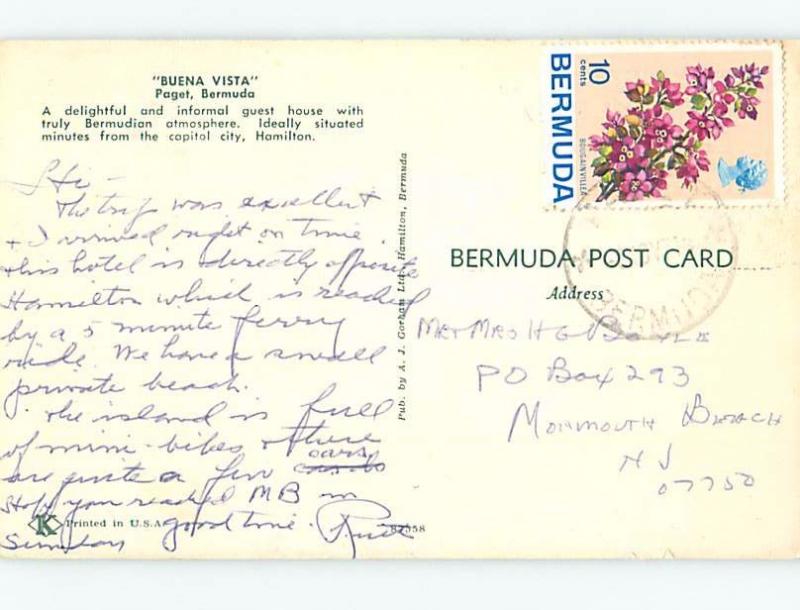 "BUENA VISTA"
Paget, Bermuda
A delightful and informal guest house with
truly Bermudian atmosphere. Ideally situated
minutes from the capitol city, Hamilton.
Hi -
The trip was excellent
+ I arrived right on time.
This hotel is directly opposite
Hamilton which is reached
by a 5 minute ferry
ride. We have a small
private beach.
The island is full
of mini-bikes + there
are quite a few cars
you reached MB in
good time.
Sunday
Printed in U.S.A.
87558
Pub. by A. J. Gorham Ltd., Hamilton, Bermuda
10
cents
BERMUDA
BOUGAINVILLEA
BERMUDA POST CARD
Address
BERMUDA
Mr + Mrs H G
PO Box 293
Monmouth Beach
NJ
07750
K